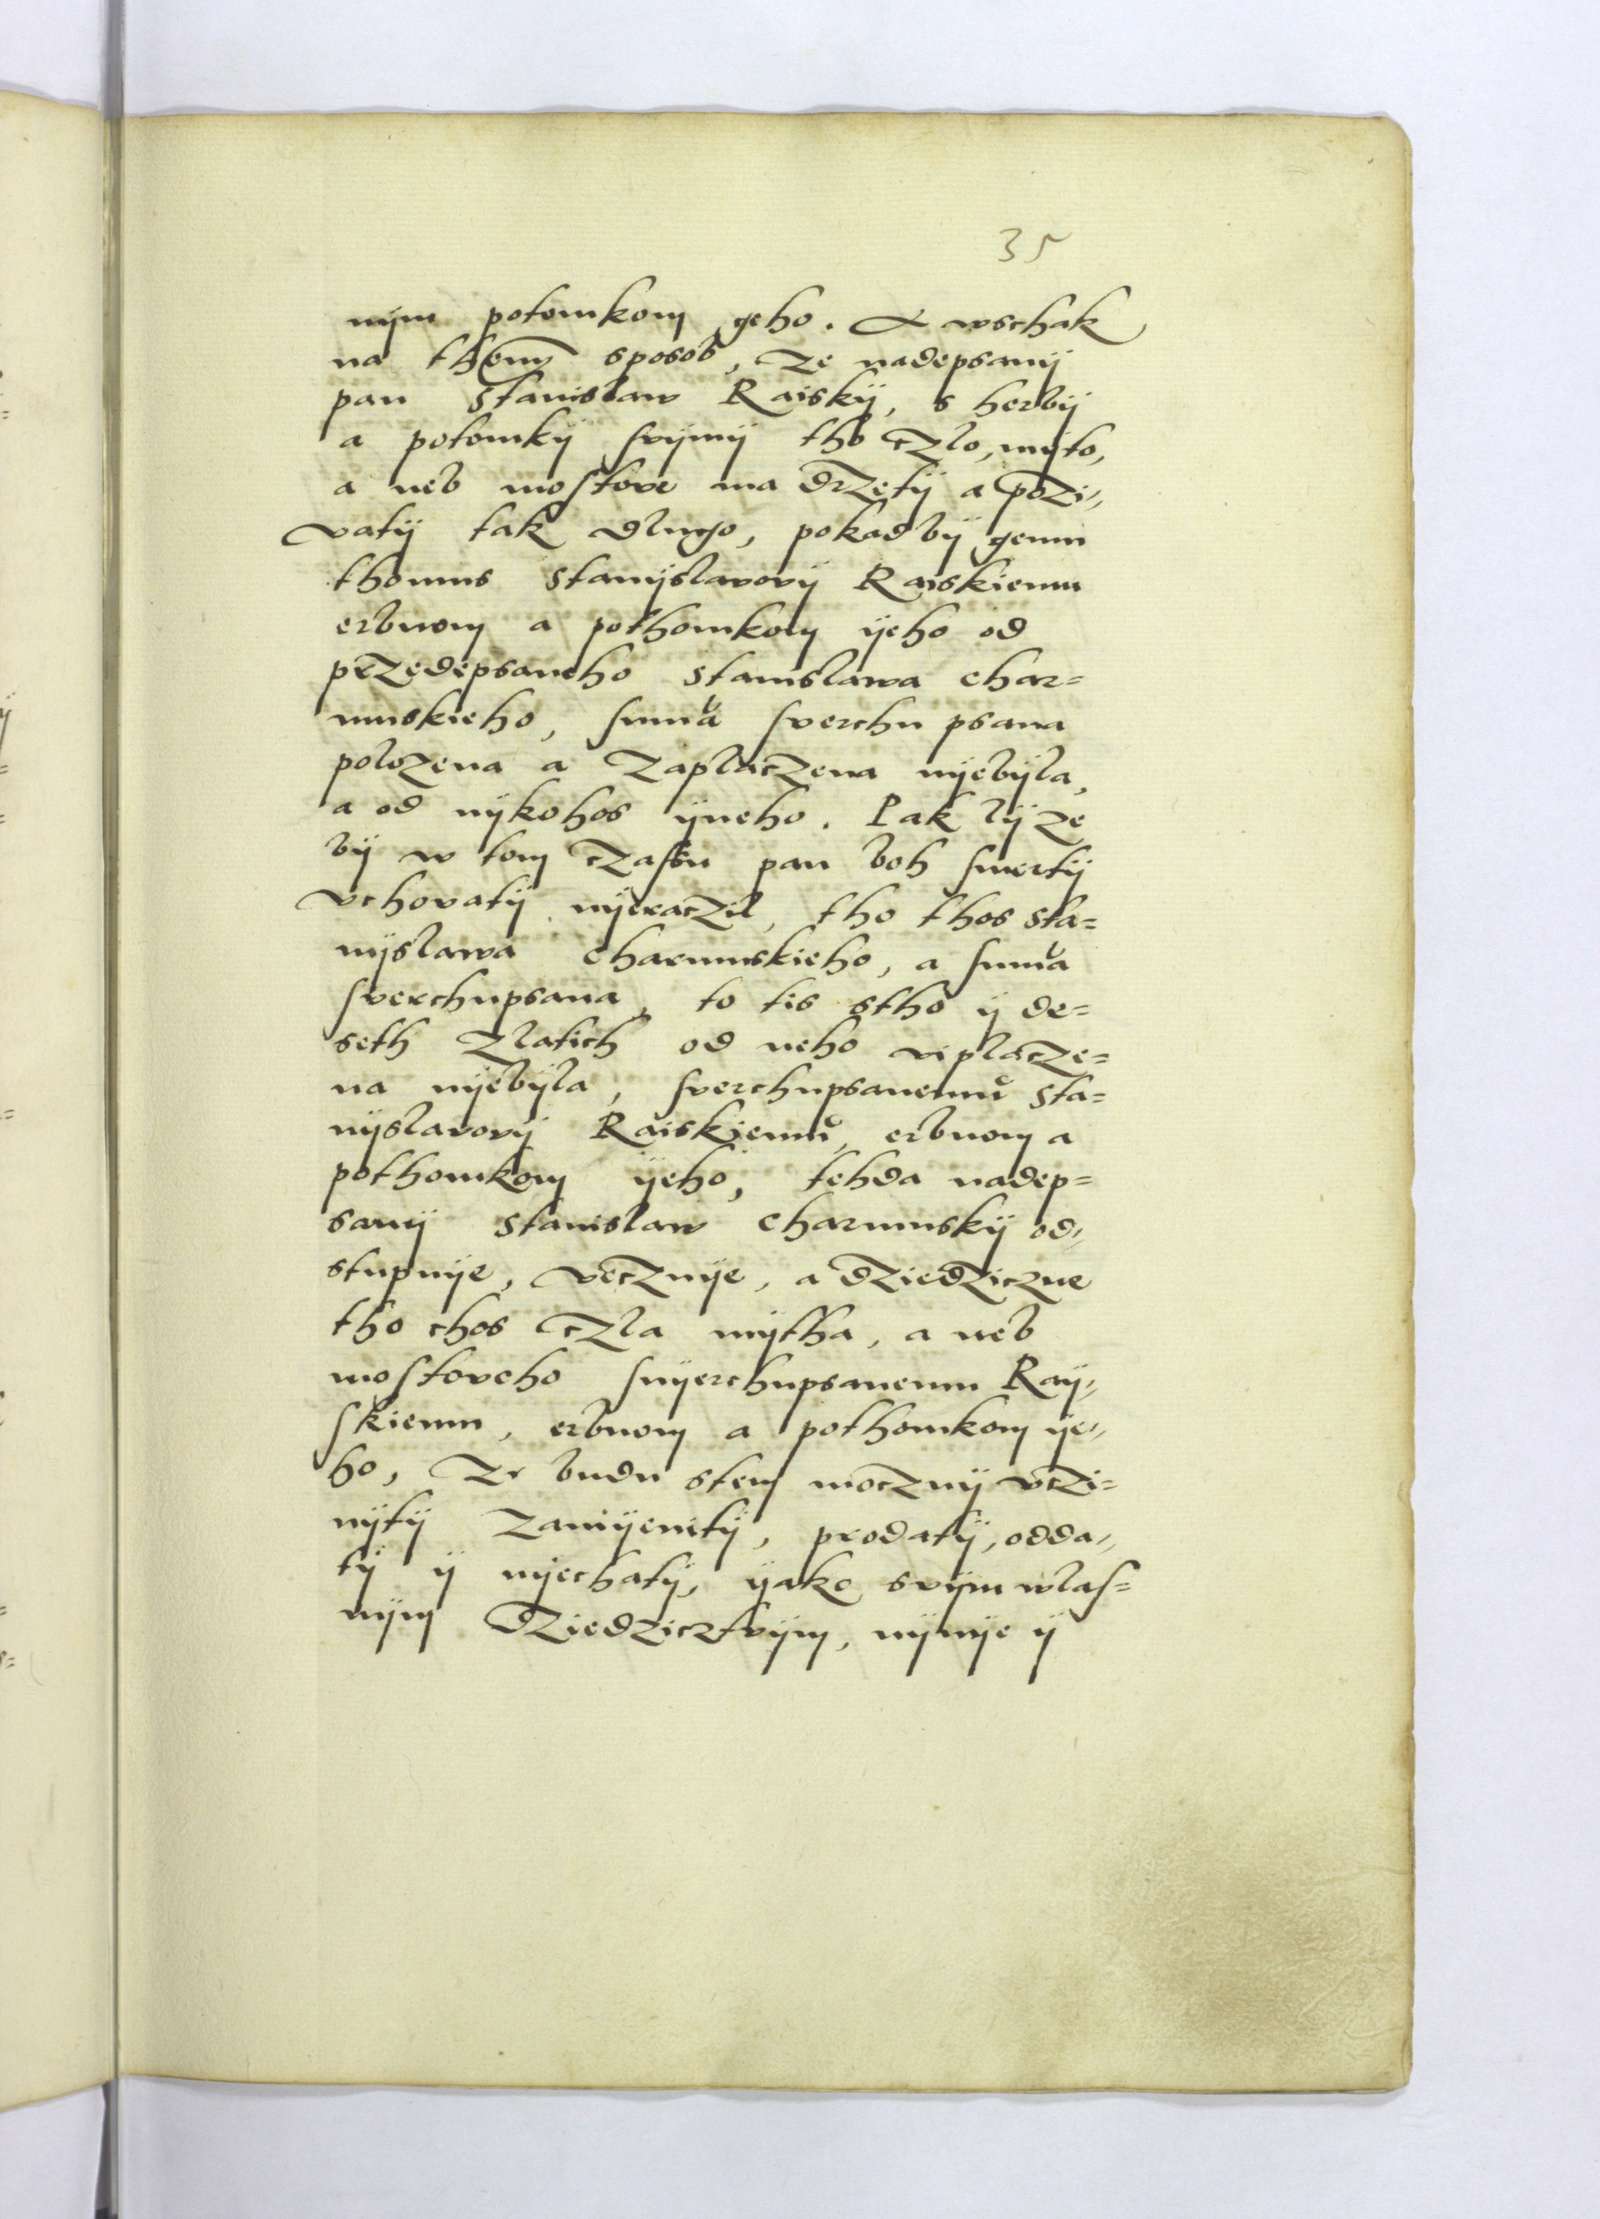 35
nÿm potomkom geho. A wschak
na themÿ sposob, ze nadepsanÿ
pan Stanislaw Raiskÿ, s herbÿ
a potomkÿ svÿmÿ tho czlo, mÿto,
a neb mostove ma drzetÿ a pozi-
vatÿ tak dlugo, pokad bÿ gemu
thomus Stanÿslavovÿ Raiskiemu
erbuom a pothomkom ÿeho od
przedepsaneho Stanislawa Char=
muskieho, summa sverchu psana
polozena a zaplaczena nÿebÿla,
a od nÿkohos ÿneho. Pak lÿ ze
bÿ w tom czassu pan boh smertÿ
vchovatÿ nÿeraczil, tho thos Sta=
nÿslawa Charmuskieho, a summa
sverchupsana, to tis stho ÿ de=
seth zlatich od neho viplacze=
na nÿebÿla, sverchupsanemu Sta=
nÿslavovÿ Raiskiemu, erbuom a
pothomkom ÿeho, tehda nadep=
sanÿ Stanislaw Charmuskÿ od-
stupuÿe, vecznÿe, a dziedziczne
tho thos czla mÿtha, a neb
mostoveho svÿerchupsanemu Raÿ-
skiemu, erbuom a pothomkom ÿe-
ho, ze budu stem mocznÿ vczi=
nÿtÿ zamÿenitÿ, prodatÿ, odda-
tÿ ÿ nÿechatÿ, ÿako svÿm wlas=
nÿm dziedzicztvÿm, nÿnÿe ÿ